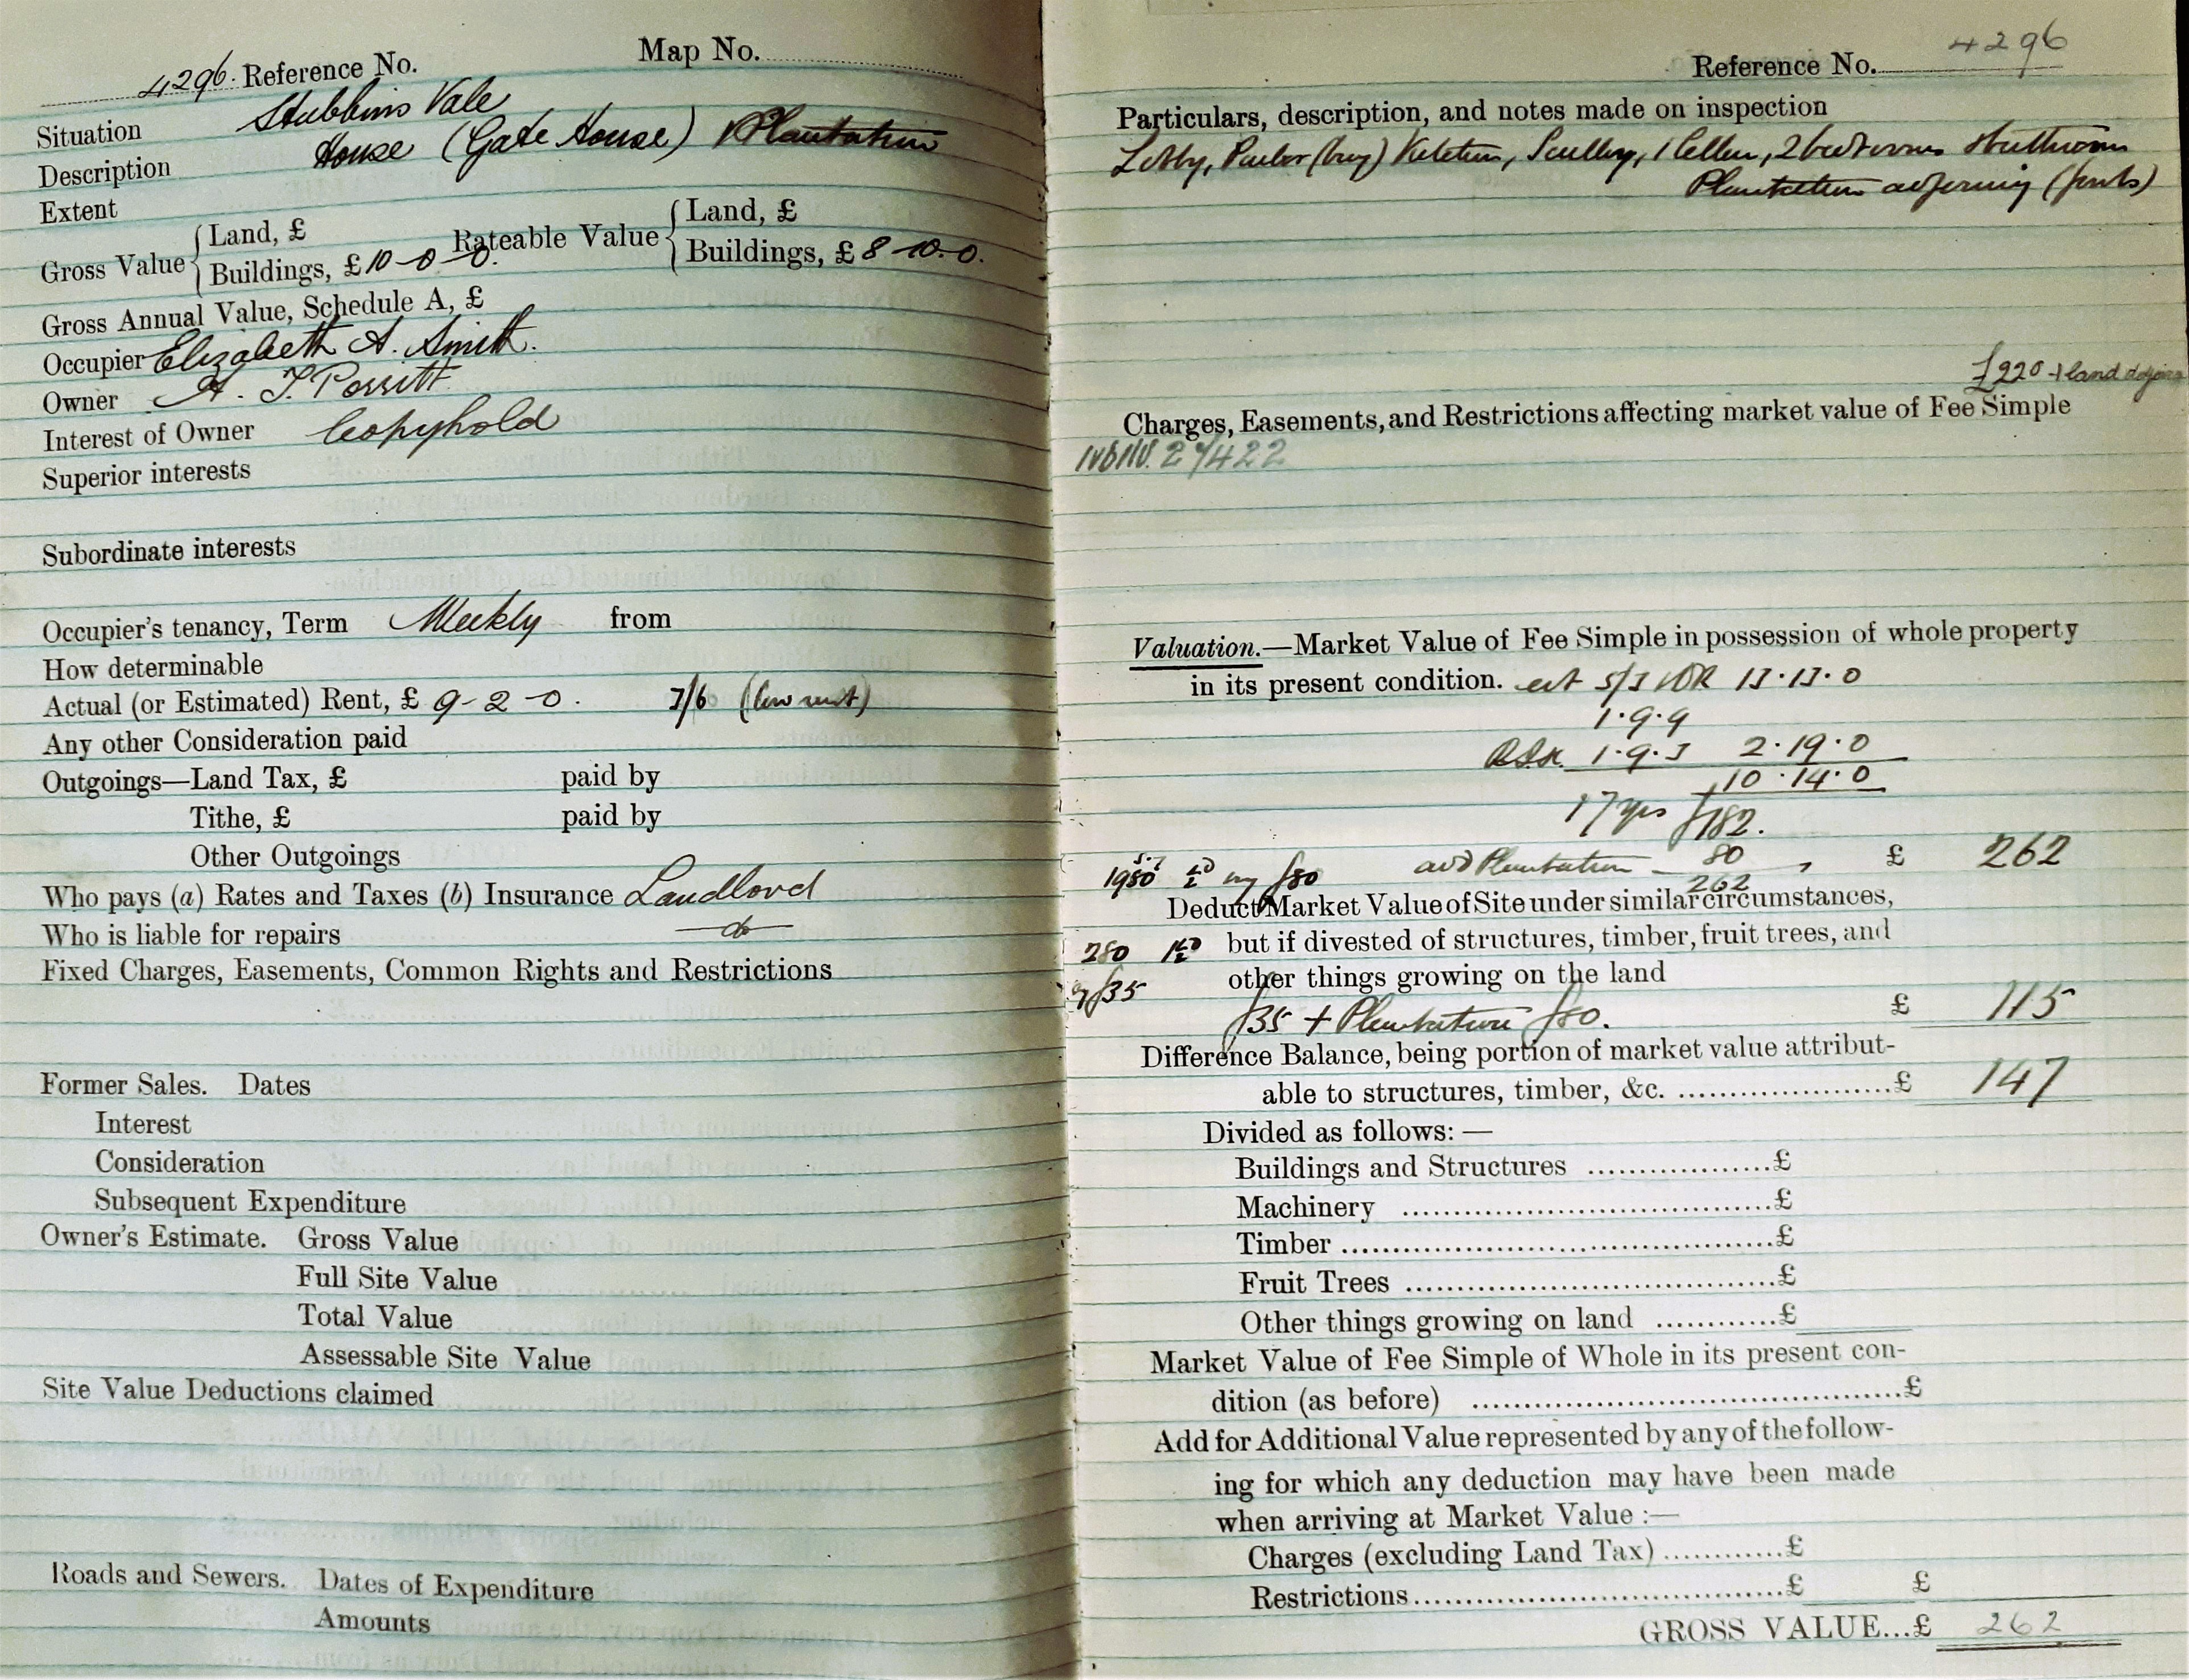 4296. Reference No. Map No.
Situation Stubbins Vale
Description House (Gate House) & Plantation
Extent
Gross Value { Land, £ Rateable Value { Land, £
Buildings, £10-0-0. Buildings, £8-10-0.
Gross Annual Value, Schedule A, £
Occupier Elizabeth A. Smith.
Owner A. T. Porritt
Interest of Owner Copyhold
Superior interests
Subordinate interests
Occupier's tenancy, Term Weekly from
How determinable
Actual (or Estimated) Rent, £ 9-2-0. (low rent)
Any other Consideration paid
Outgoings—Land Tax, £ paid by
Tithe, £ paid by
Other Outgoings
Who pays (a) Rates and Taxes (b) Insurance Landlord
Who is liable for repairs do
Fixed Charges, Easements, Common Rights and Restrictions
Former Sales. Dates
Interest
Consideration
Subsequent Expenditure
Owner's Estimate. Gross Value
Full Site Value
Total Value
Assessable Site Value
Site Value Deductions claimed
Roads and Sewers. Dates of Expenditure
Amounts
Reference No. 4296
Particulars, description, and notes made on inspection
Lobby, Parlor (bay) Kitchen, Scullery, 1 Cellar, 2 bedrooms & bathroom
Plantation adjoining
£220 + land
Charges, Easements, and Restrictions affecting market value of Fee Simple
27422
Valuation.—Market Value of Fee Simple in possession of whole property
in its present condition. 5/3 13·13·0
1·9·9
1·9·3 2·19·0
10·14·0
17 yrs £182.
add Plantation 80 £ 262
262
Deduct Market Value of Site under similar circumstances,
280 but if divested of structures, timber, fruit trees, and
£35 other things growing on the land
£35 + Plantation £80. £ 115
Difference Balance, being portion of market value attribut-
able to structures, timber, &c. ....................£ 147
Divided as follows: —
Buildings and Structures ..................£
Machinery ....................................£
Timber ..........................................£
Fruit Trees ....................................£
Other things growing on land ............£
Market Value of Fee Simple of Whole in its present con-
dition (as before) ..........................................£
Add for Additional Value represented by any of the follow-
ing for which any deduction may have been made
when arriving at Market Value :—
Charges (excluding Land Tax) ............£
Restrictions.....................................£ £
GROSS VALUE...£ 262